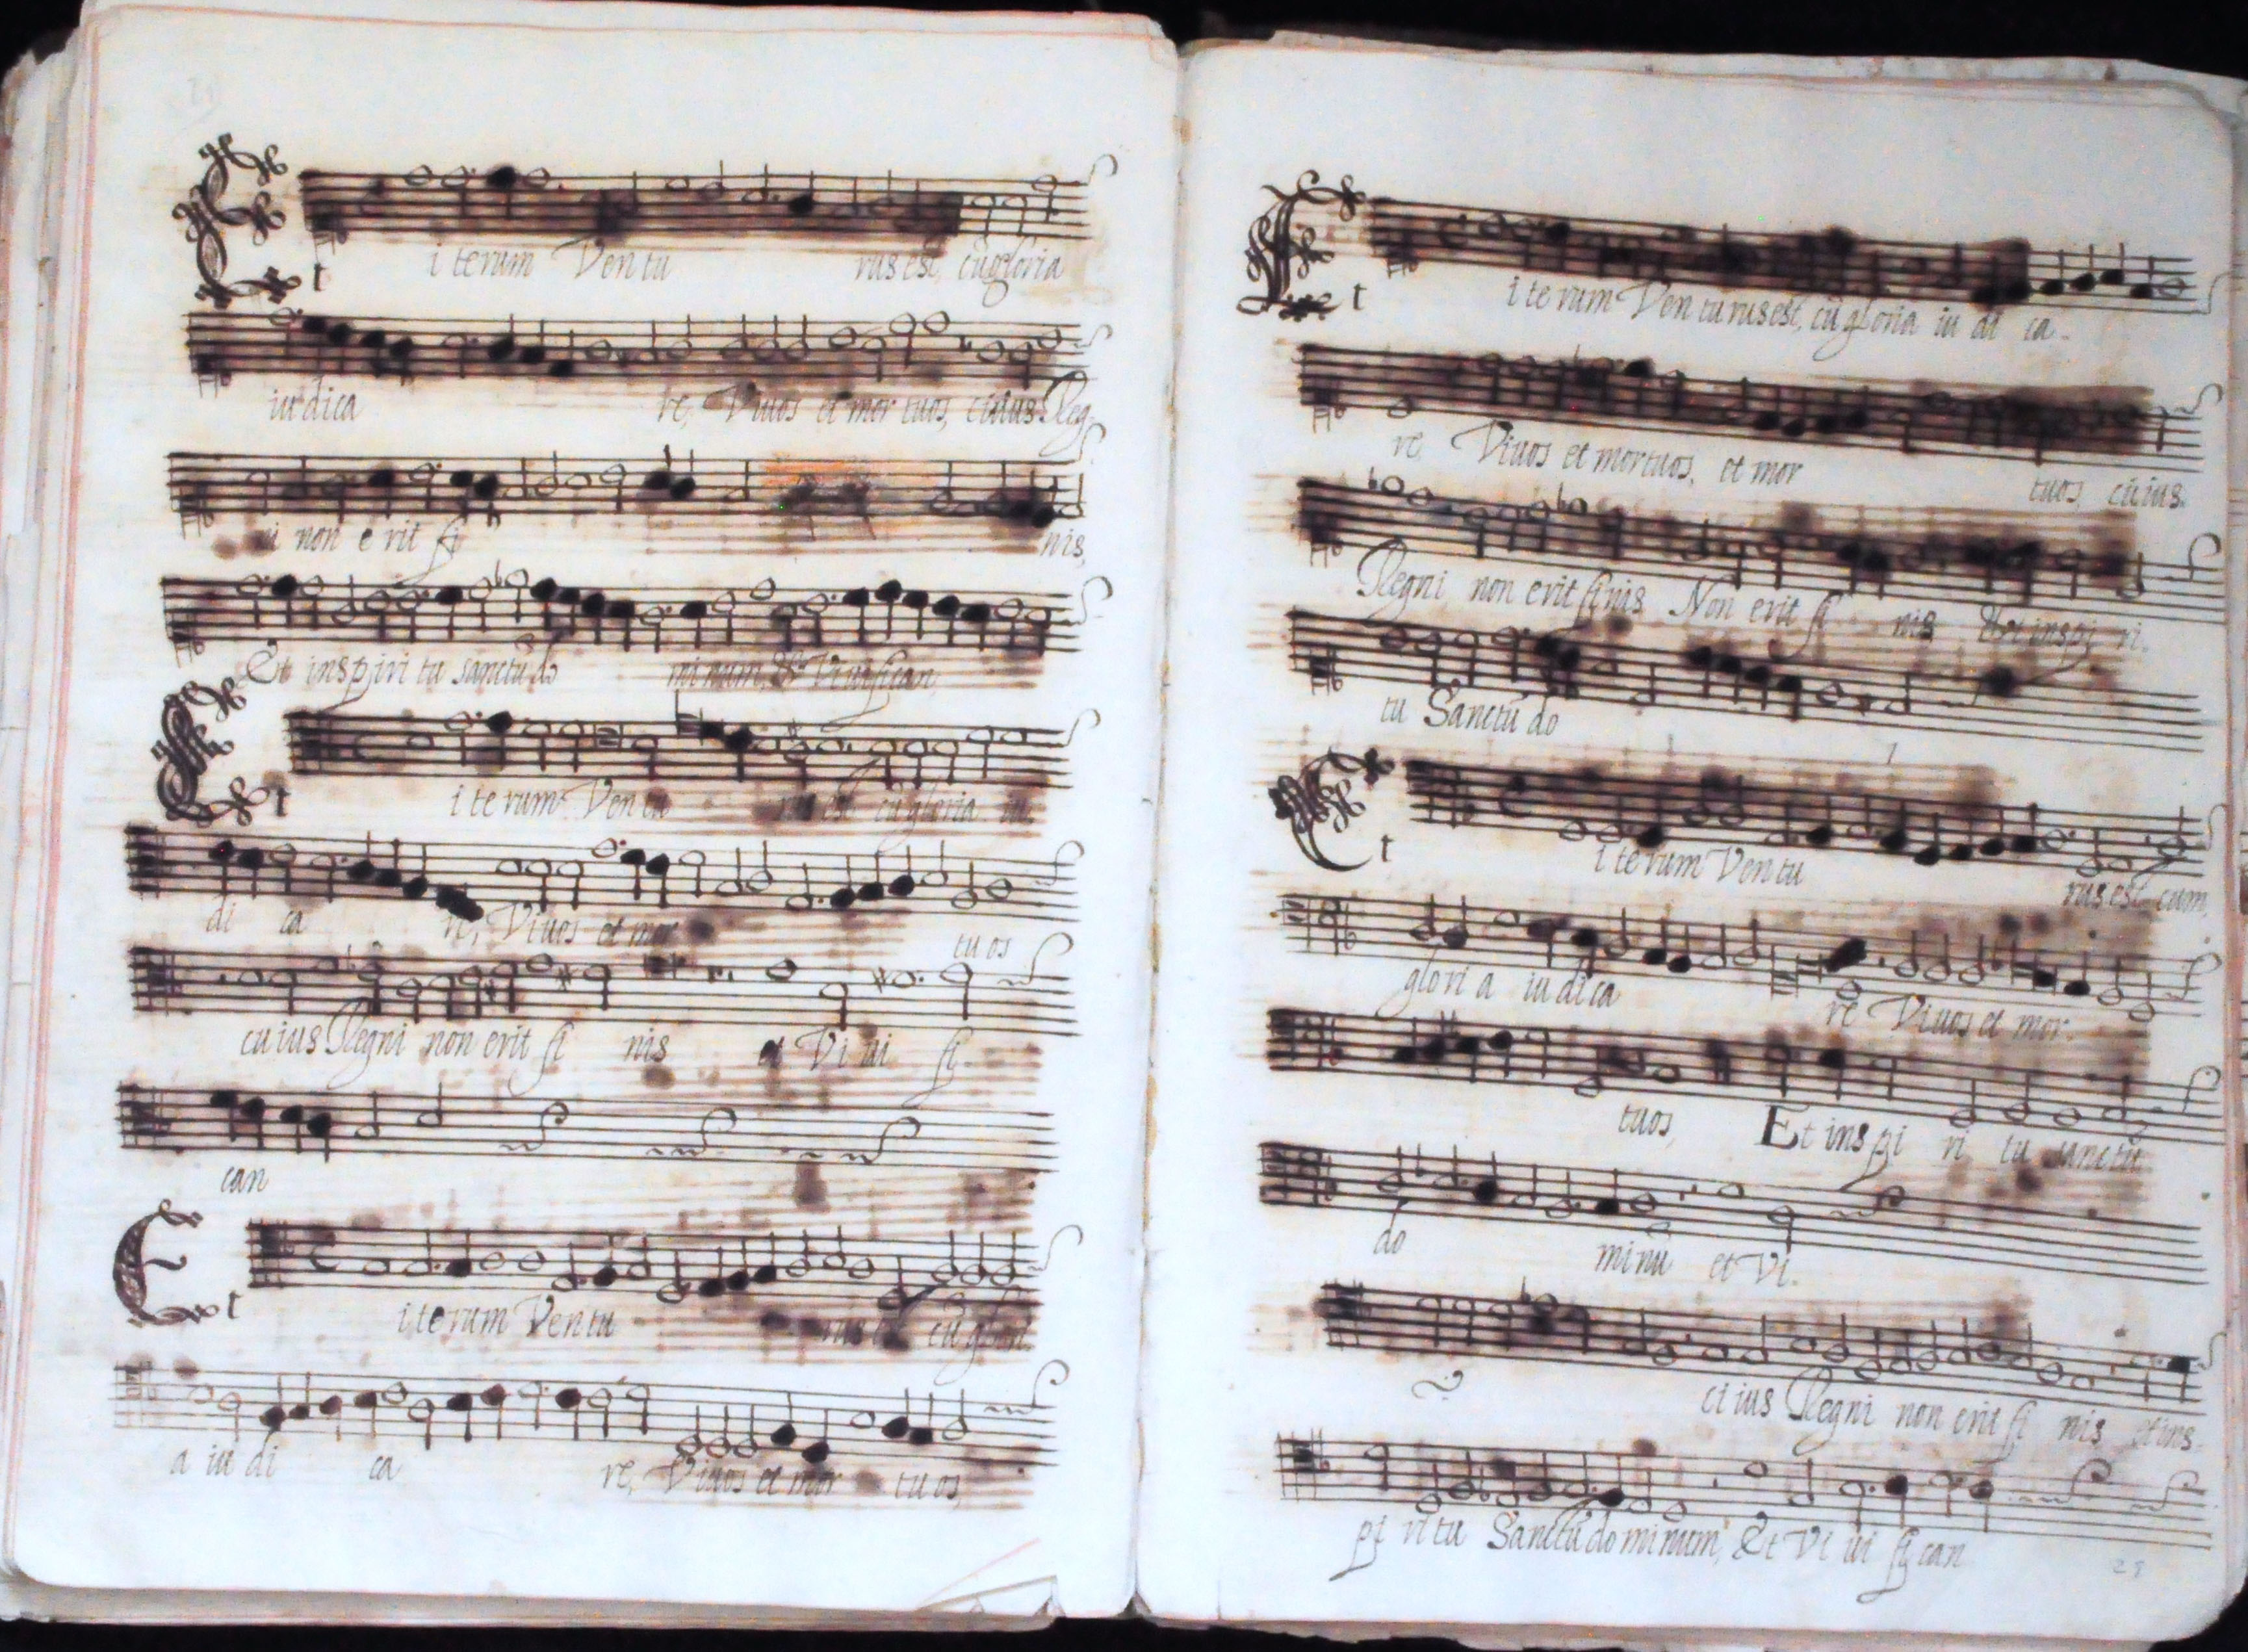 Et iterum Ventu rus est cũ gloria
iudica re, Viuos et mor tuos, cuius Reg-
ni non erit fi nis,
Et inspiri tu sanctũ do minum, & Viuifican
Et iterum Ventu rus est cũ gloria iu-
di ca re, Viuos et mor tuos
cuius Regni non erit fi nis et Vi ui fi-
can
Et iterum Ventu rus est cũ glori-
a iu di ca re, Viuos et mor tuos,
Et iterum Venturus est, cũ gloria iu di ca-
re Viuos et mortuos, et mor tuos, cuius
Regni non erit finis Non erit fi nis Et inspi ri-
tu Sanctũ do
Et iterum Ventu rus est cum,
glori a iudica re Viuos et mor-
tuos, Et inspi ri tu sanctũ
do minũ et Vi-
cuius Regni non erit fi nis et ins-
pi ritu Sanctũ dominum, Et Vi ui fi can
28